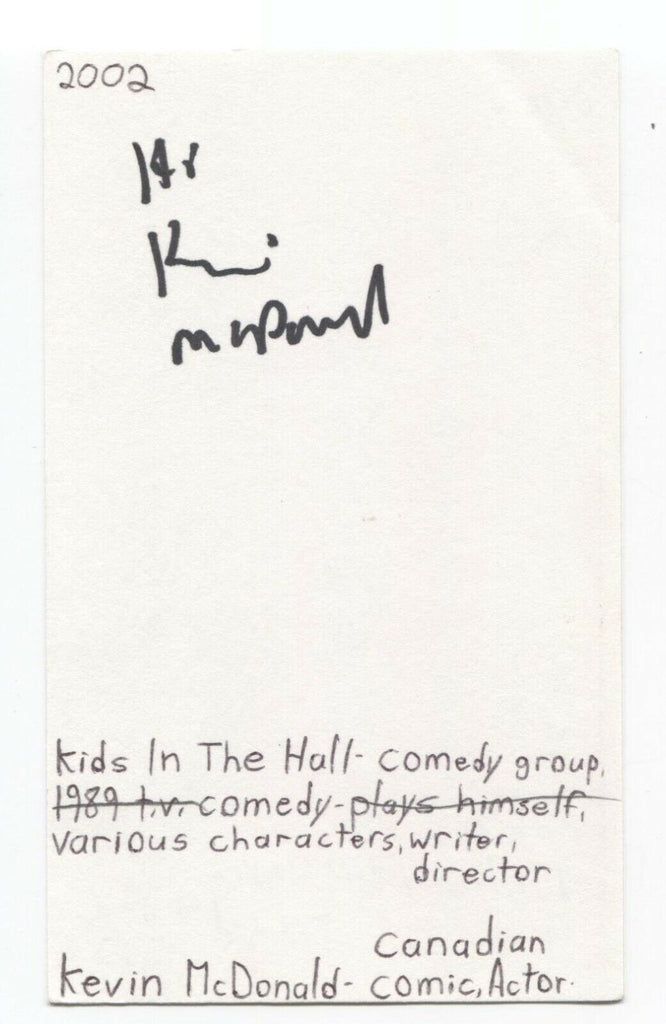 2002
Kevin
McDonald
Kids In The Hall- comedy group,
1989 t.v. comedy-plays himself,
various characters, writer,
director
Canadian
Kevin McDonald- comic, Actor.